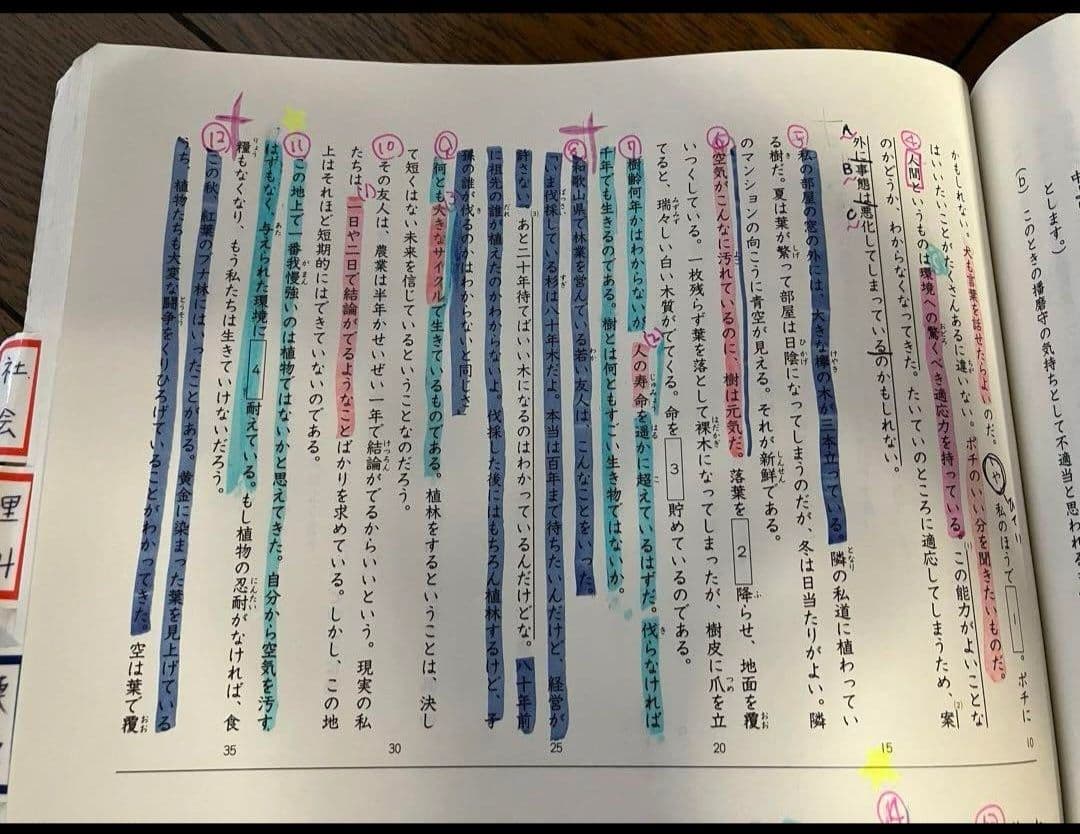 (b) このときの播磨守の気持ちとして不適当と思われ
とします。)
のだ。や 私のほうで 1 。ポチに
かもしれない。犬も言葉を話せたらよい
はいいたいことがたくさんあるに違いない。ポチのいい分を聞きたいものだ。
④人間というものは環境への驚くべき適応力を持っている。この能力がよいことな
のかどうか、わからなくなってきた。たいていのところに適応してしまうため、案
外に事態は悪化してしまっているのかもしれない。
A B C
⑤私の部屋の窓の外には、大きな欅の木が三本立っている。隣の私道に植わってい
る樹だ。夏は葉が繁って部屋は日陰になってしまうのだが、冬は日当たりがよい。隣
のマンションの向こうに青空が見える。それが新鮮である。
⑥空気がこんなに汚れているのに、樹は元気だ。落葉を 2 降らせ、地面を覆
いつくしている。一枚残らず葉を落として裸木になってしまったが、樹皮に爪を立
てると、瑞々しい白い木質がでてくる。命を 3 貯めているのである。
⑦樹齢何年かはわからないが、人の寿命を遥かに超えているはずだ。伐らなければ
千年でも生きるのである。樹とは何ともすごい生き物ではないか。
⑧和歌山県で林業を営んでいる若い友人は、こんなことをいった。
「いま伐採している杉は八十年木だよ。本当は百年まで待ちたいんだけど、経営が
許さない。あと二十年待てばいい木になるのはわかっているんだけどな。八十年前
に祖先の誰が植えたのかわからないよ。伐採した後にはもちろん植林するけど、子
孫の誰が伐るのかはわからないと同じさ」
⑨何とも大きなサイクルで生きているものである。植林をするということは、決し
て短くはない未来を信じているということなのだろう。
⑩その友人は、農業は半年かせいぜい一年で結論がでるからいいという。現実の私
たちは、一日や二日で結論がでるようなことばかりを求めている。しかし、この地
上はそれほど短期的にはできていないのである。
⑪この地上で一番我慢強いのは植物ではないかと思えてきた。自分から空気を汚す
はずもなく、与えられた環境に 4 耐えている。もし植物の忍耐がなければ、食
糧もなくなり、もう私たちは生きていけないだろう。
⑫この秋、紅葉のブナ林にはいったことがある。黄金に染まった葉を見上げている
うち、植物たちも大変な闘争をくりひろげていることがわかってきた。空は葉で覆
10
15
20
25
30
35
社会
理科